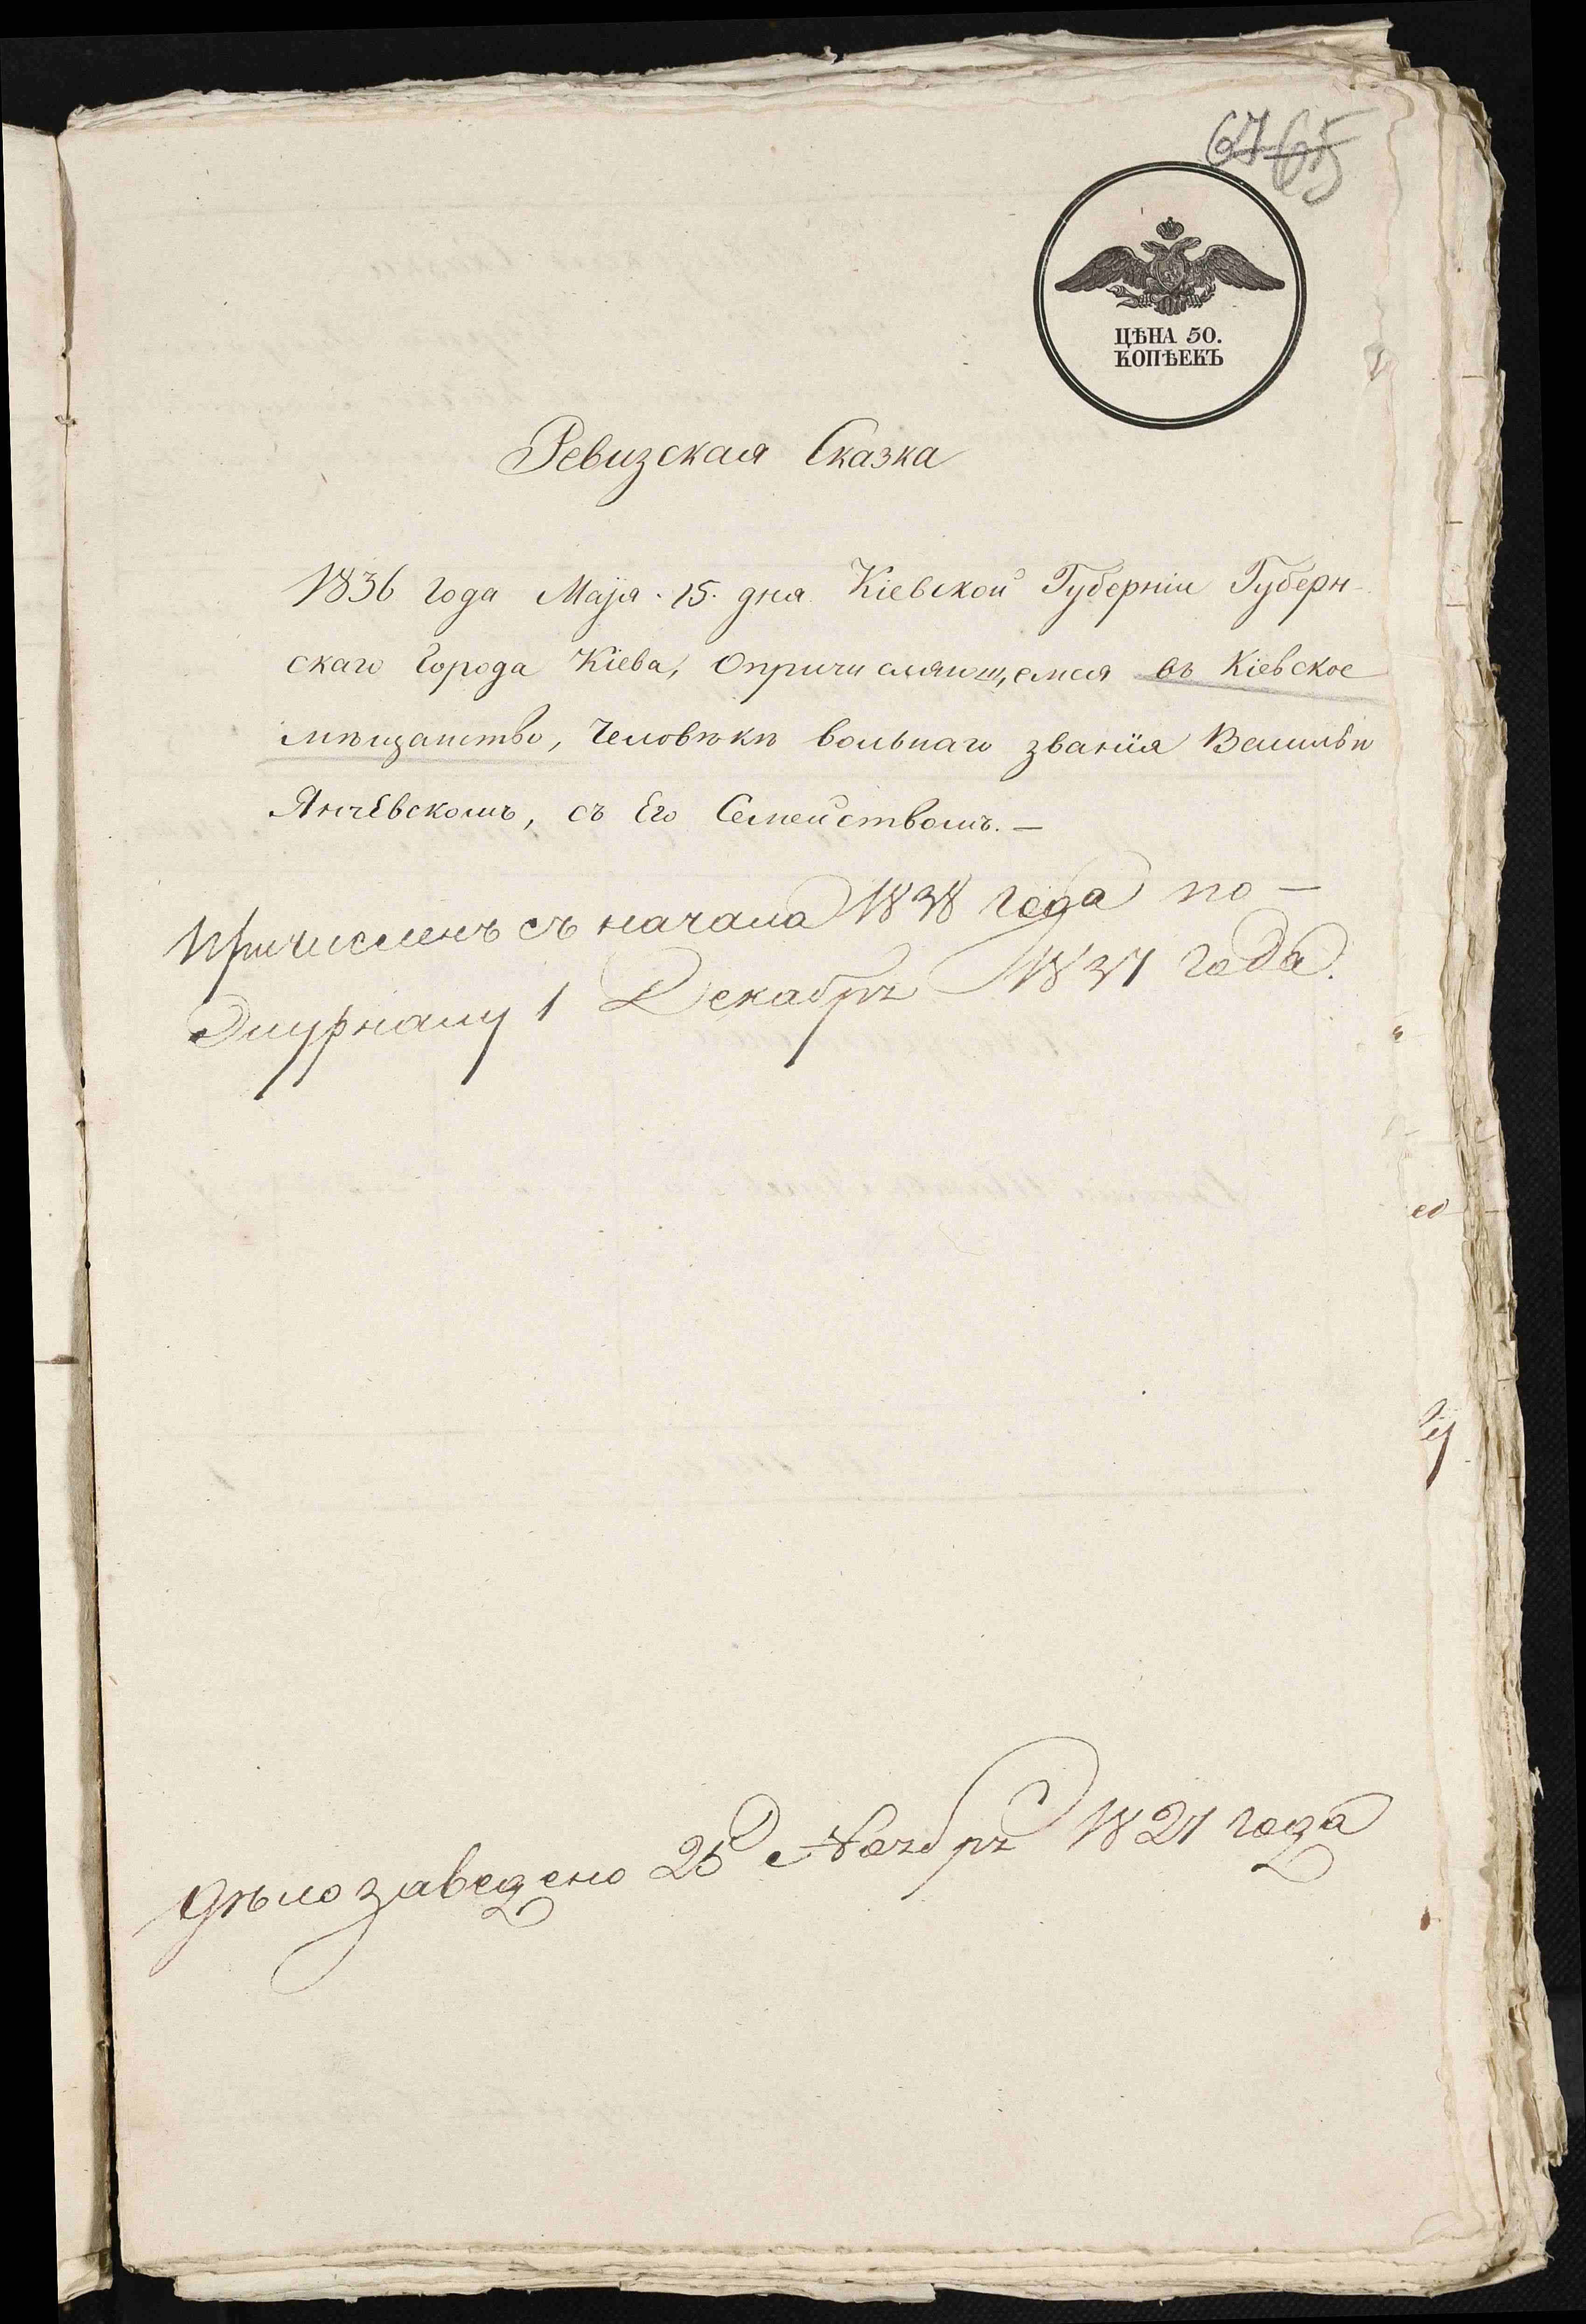 67 65
ЦѢНА 50.
КОПѢЕКЪ
Ревизская Сказка
1836 года Маія 15. дня Кіевской Губерніи Губерн-
скаго Города Кіева, Опричисляющемся въ Кіевское
мѣщанство, Человѣкѣ вольнаго званія
Янчевскомъ, съ Его Семействомъ. —
Причисленъ съ начала 1838 года по —
журналу 1 Декабря 1837 года.
Дѣло заведено 25 Ноября 1827 года